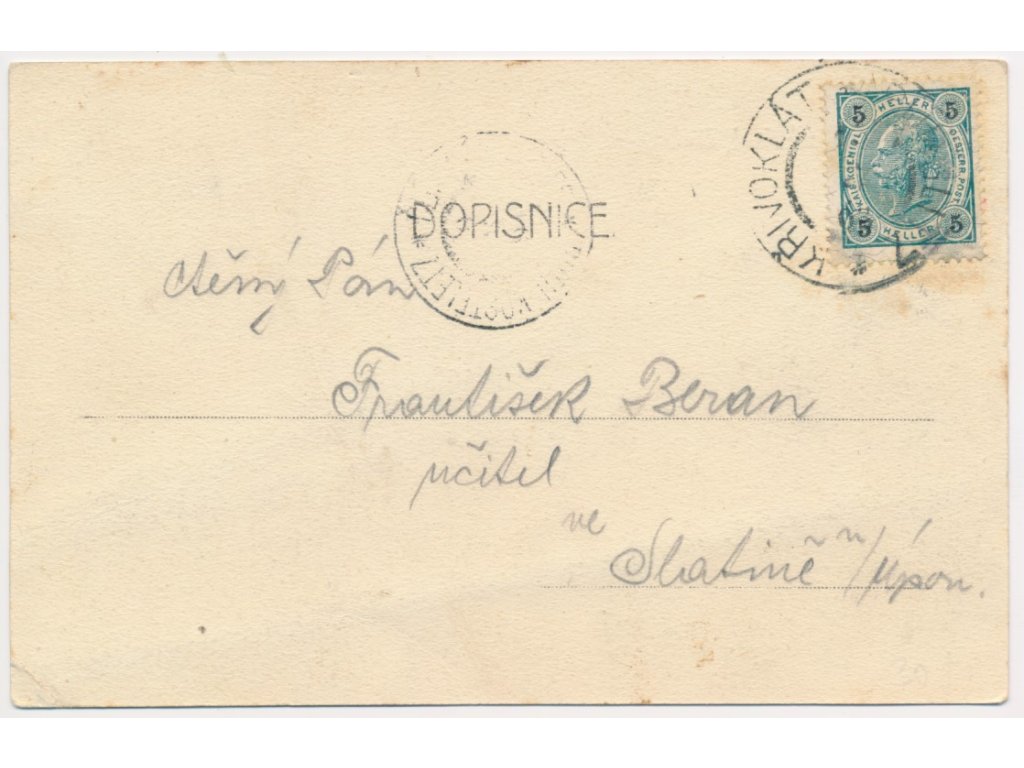 KŘIVOKLÁT
5 HELLER 5
KAIS. KOENIGL. OESTERR. POST.
5 HELLER 5
DOPISNICE
KOSTELETZ
ctěný Pán
František Beran
učitel
ve
Slatině n/Úpou.